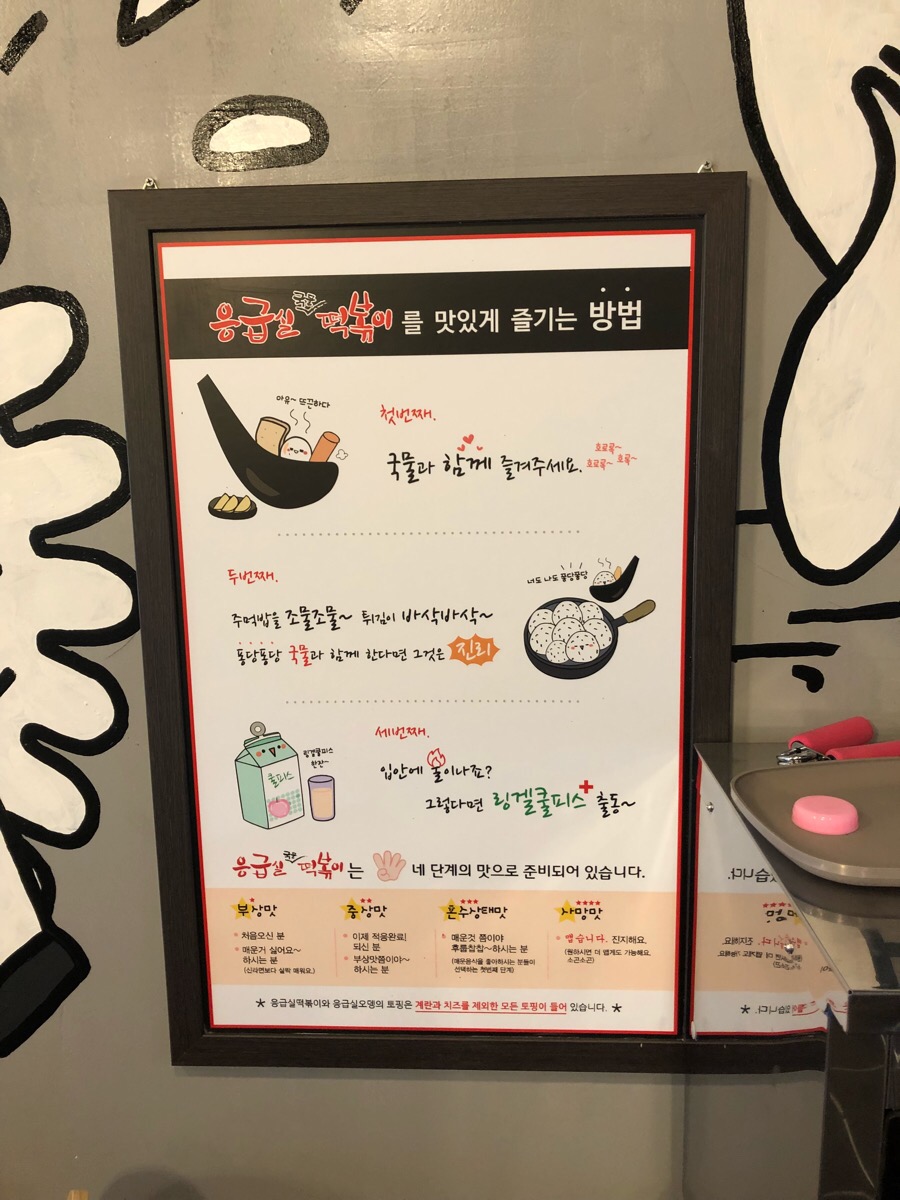 응급실 국물 떡볶이 를 맛있게 즐기는 방법
아유~ 뜨끈하다
첫번째.
국물과 함께 즐겨주세요.
호로록~
호로록~ 호록~
두번째.
너도 나도 퐁당퐁당
주먹밥을 조물조물~ 튀김이 바삭바삭~
퐁당퐁당 국물과 함께 한다면 그것은 진리
세번째.
링겔쿨피스
한잔~
쿨피스
입안에 불이나죠?
그렇다면 링겔쿨피스 출동~
응급실 국물 떡볶이는 네 단계의 맛으로 준비되어 있습니다.
부상맛
처음오신 분
매운거 싫어요~
하시는 분
(신라면보다 살짝 매워요.)
중상맛
이제 적응완료!
되신 분
부상맛쯤이야~
하시는 분
혼수상태맛
매운것 쯤이야
후룹찹찹~하시는 분
(매운음식을 좋아하시는 분들이
선택하는 첫번째 단계)
사망맛
맵습니다. 진지해요.
(원하시면 더 맵게도 가능해요.
소곤소곤)
* 응급실떡볶이와 응급실오뎅의 토핑은 계란과 치즈를 제외한 모든 토핑이 들어 있습니다. *